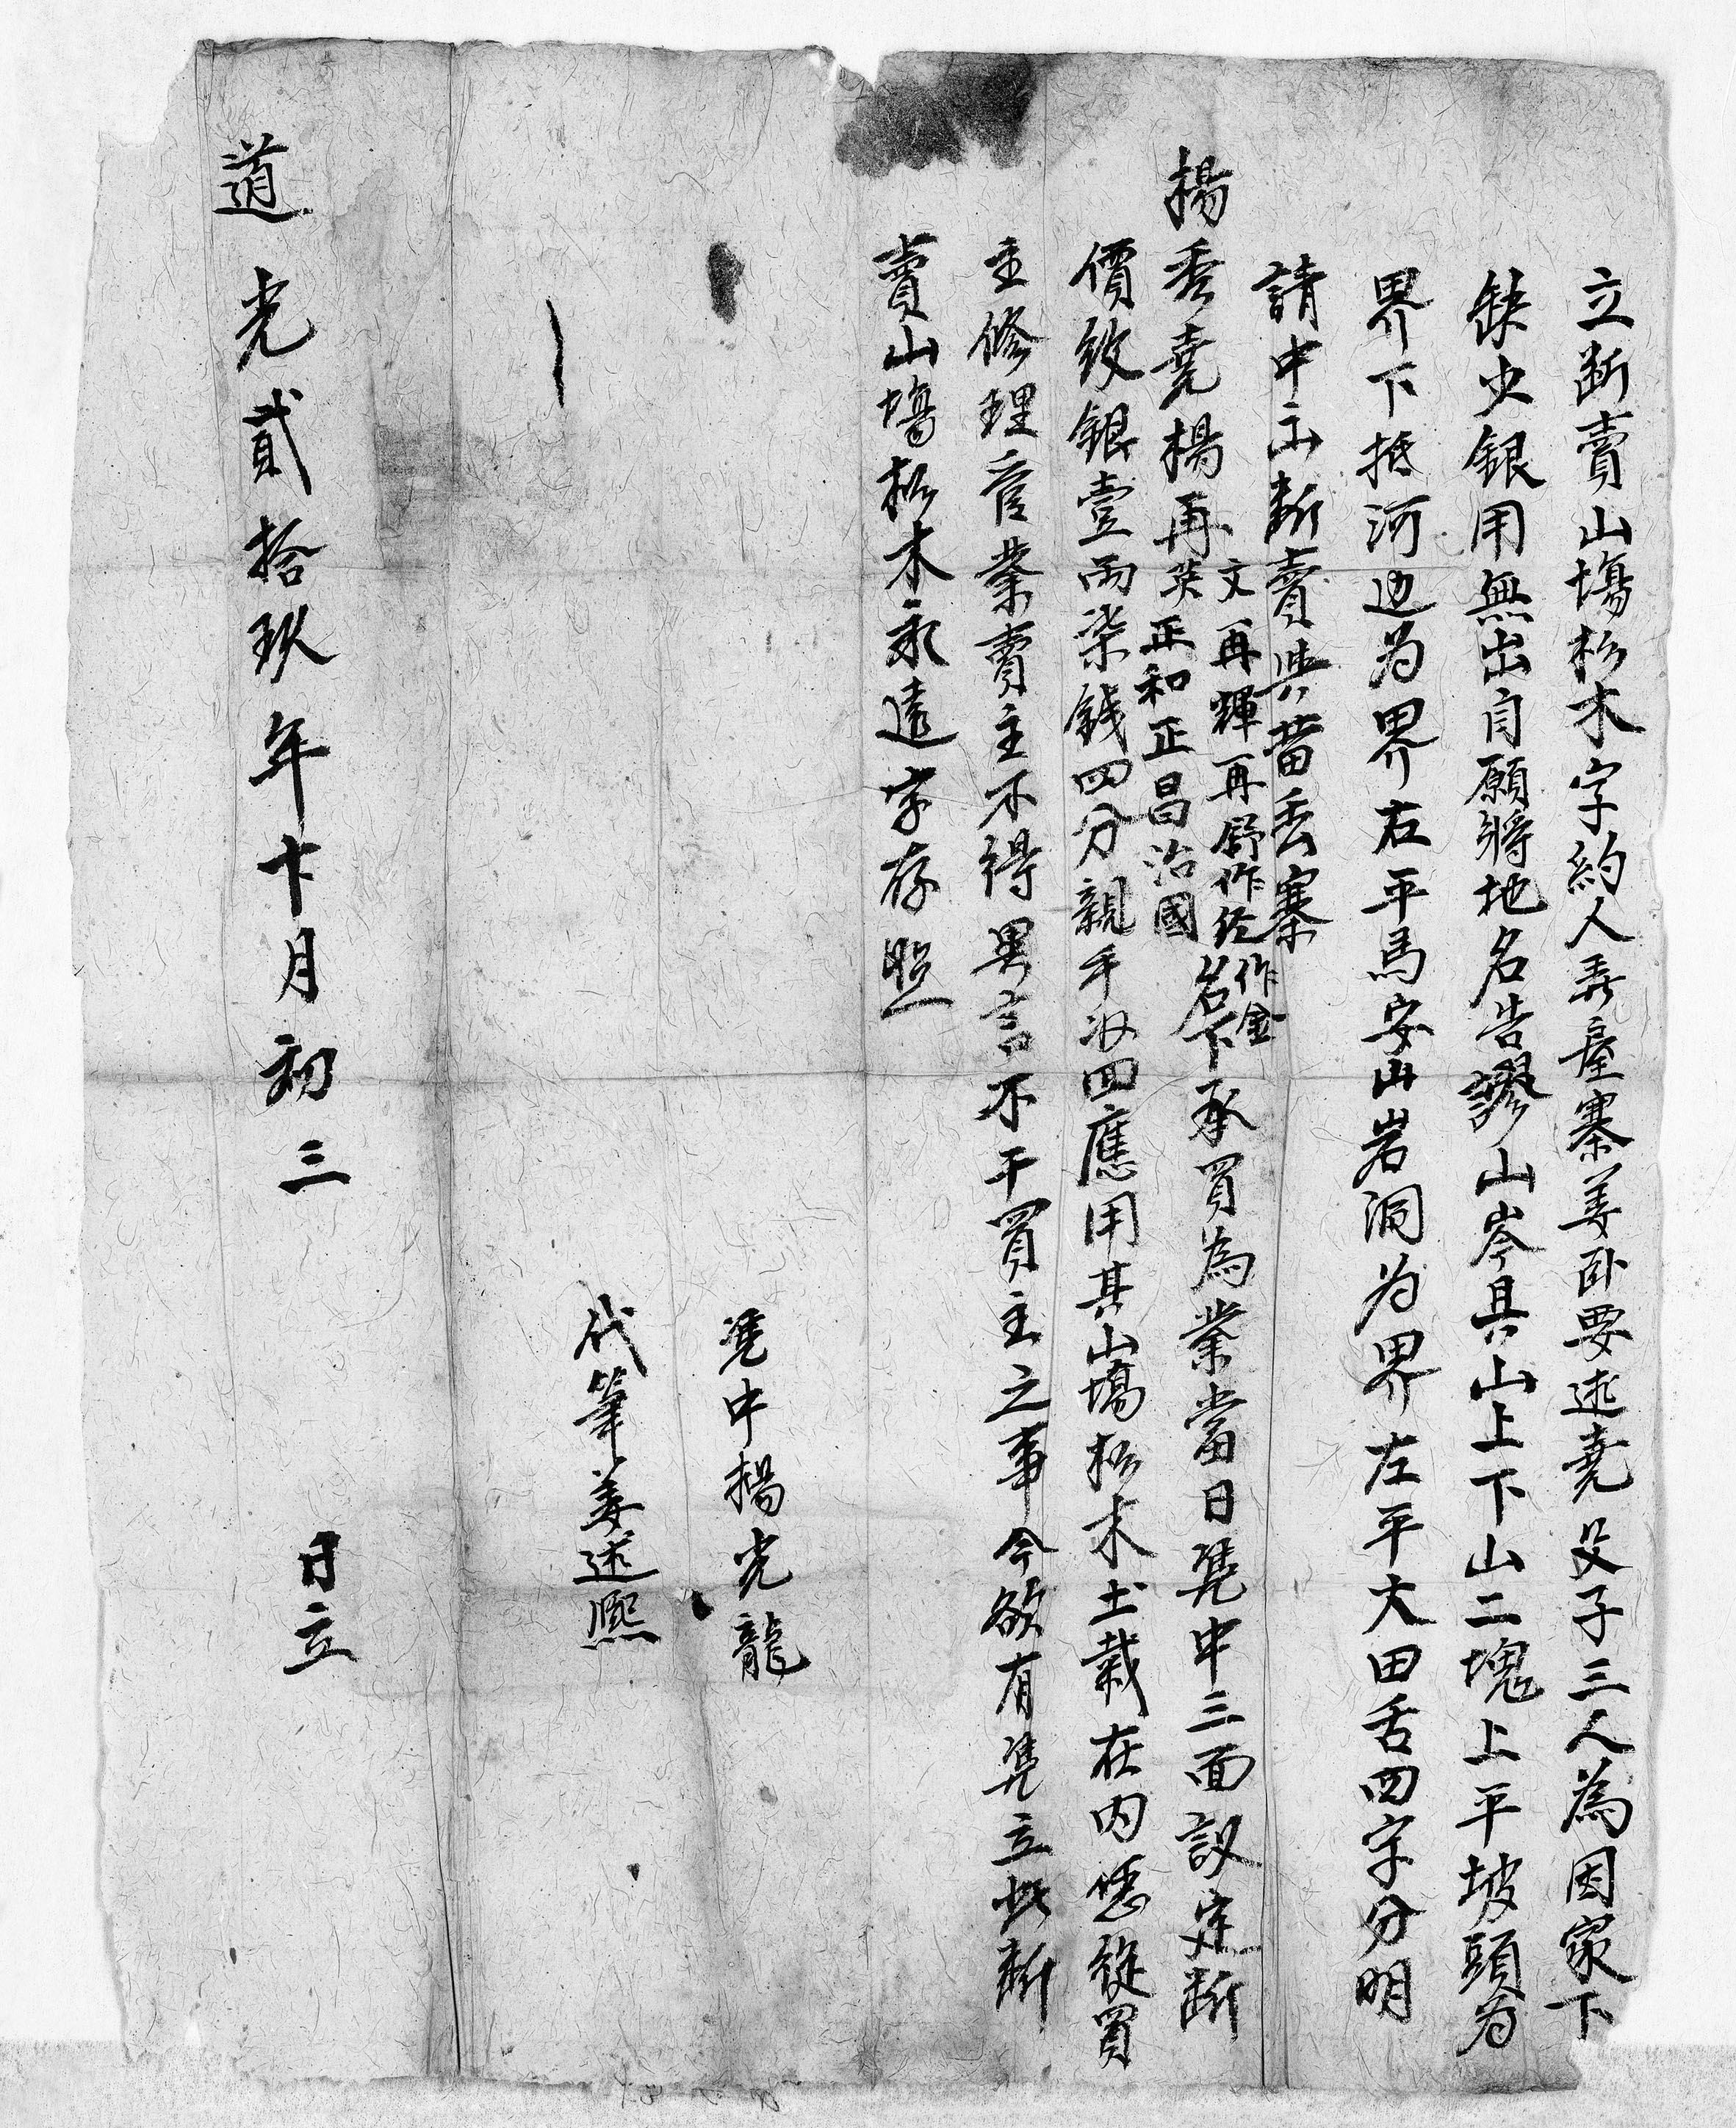 立断賣山塲杉木字約人弄屋寨姜卧要述堯父子三人為因家下
缺少銀用無出自願將地名告謬山岺具山上下山二塊上平坡頭为
界下抵河边为界右平馬安山岩洞为界左平大田舌四字分明
請中出断賣與苗丢寨
楊秀堯楊再
文再輝再舒作经作金
英正和正昌治國
名下承買為業當日凴中三面議定断
價紋銀壹两柒錢四分親手收回應用其山塲杉木土栽在内恁從買
主修理管業賣主不得異言不干買主之事今欲有凴立此断
賣山塲杉木永遠字存照
凴中楊光龍
代筆姜述熈
道光貳拾玖年十月初三日立